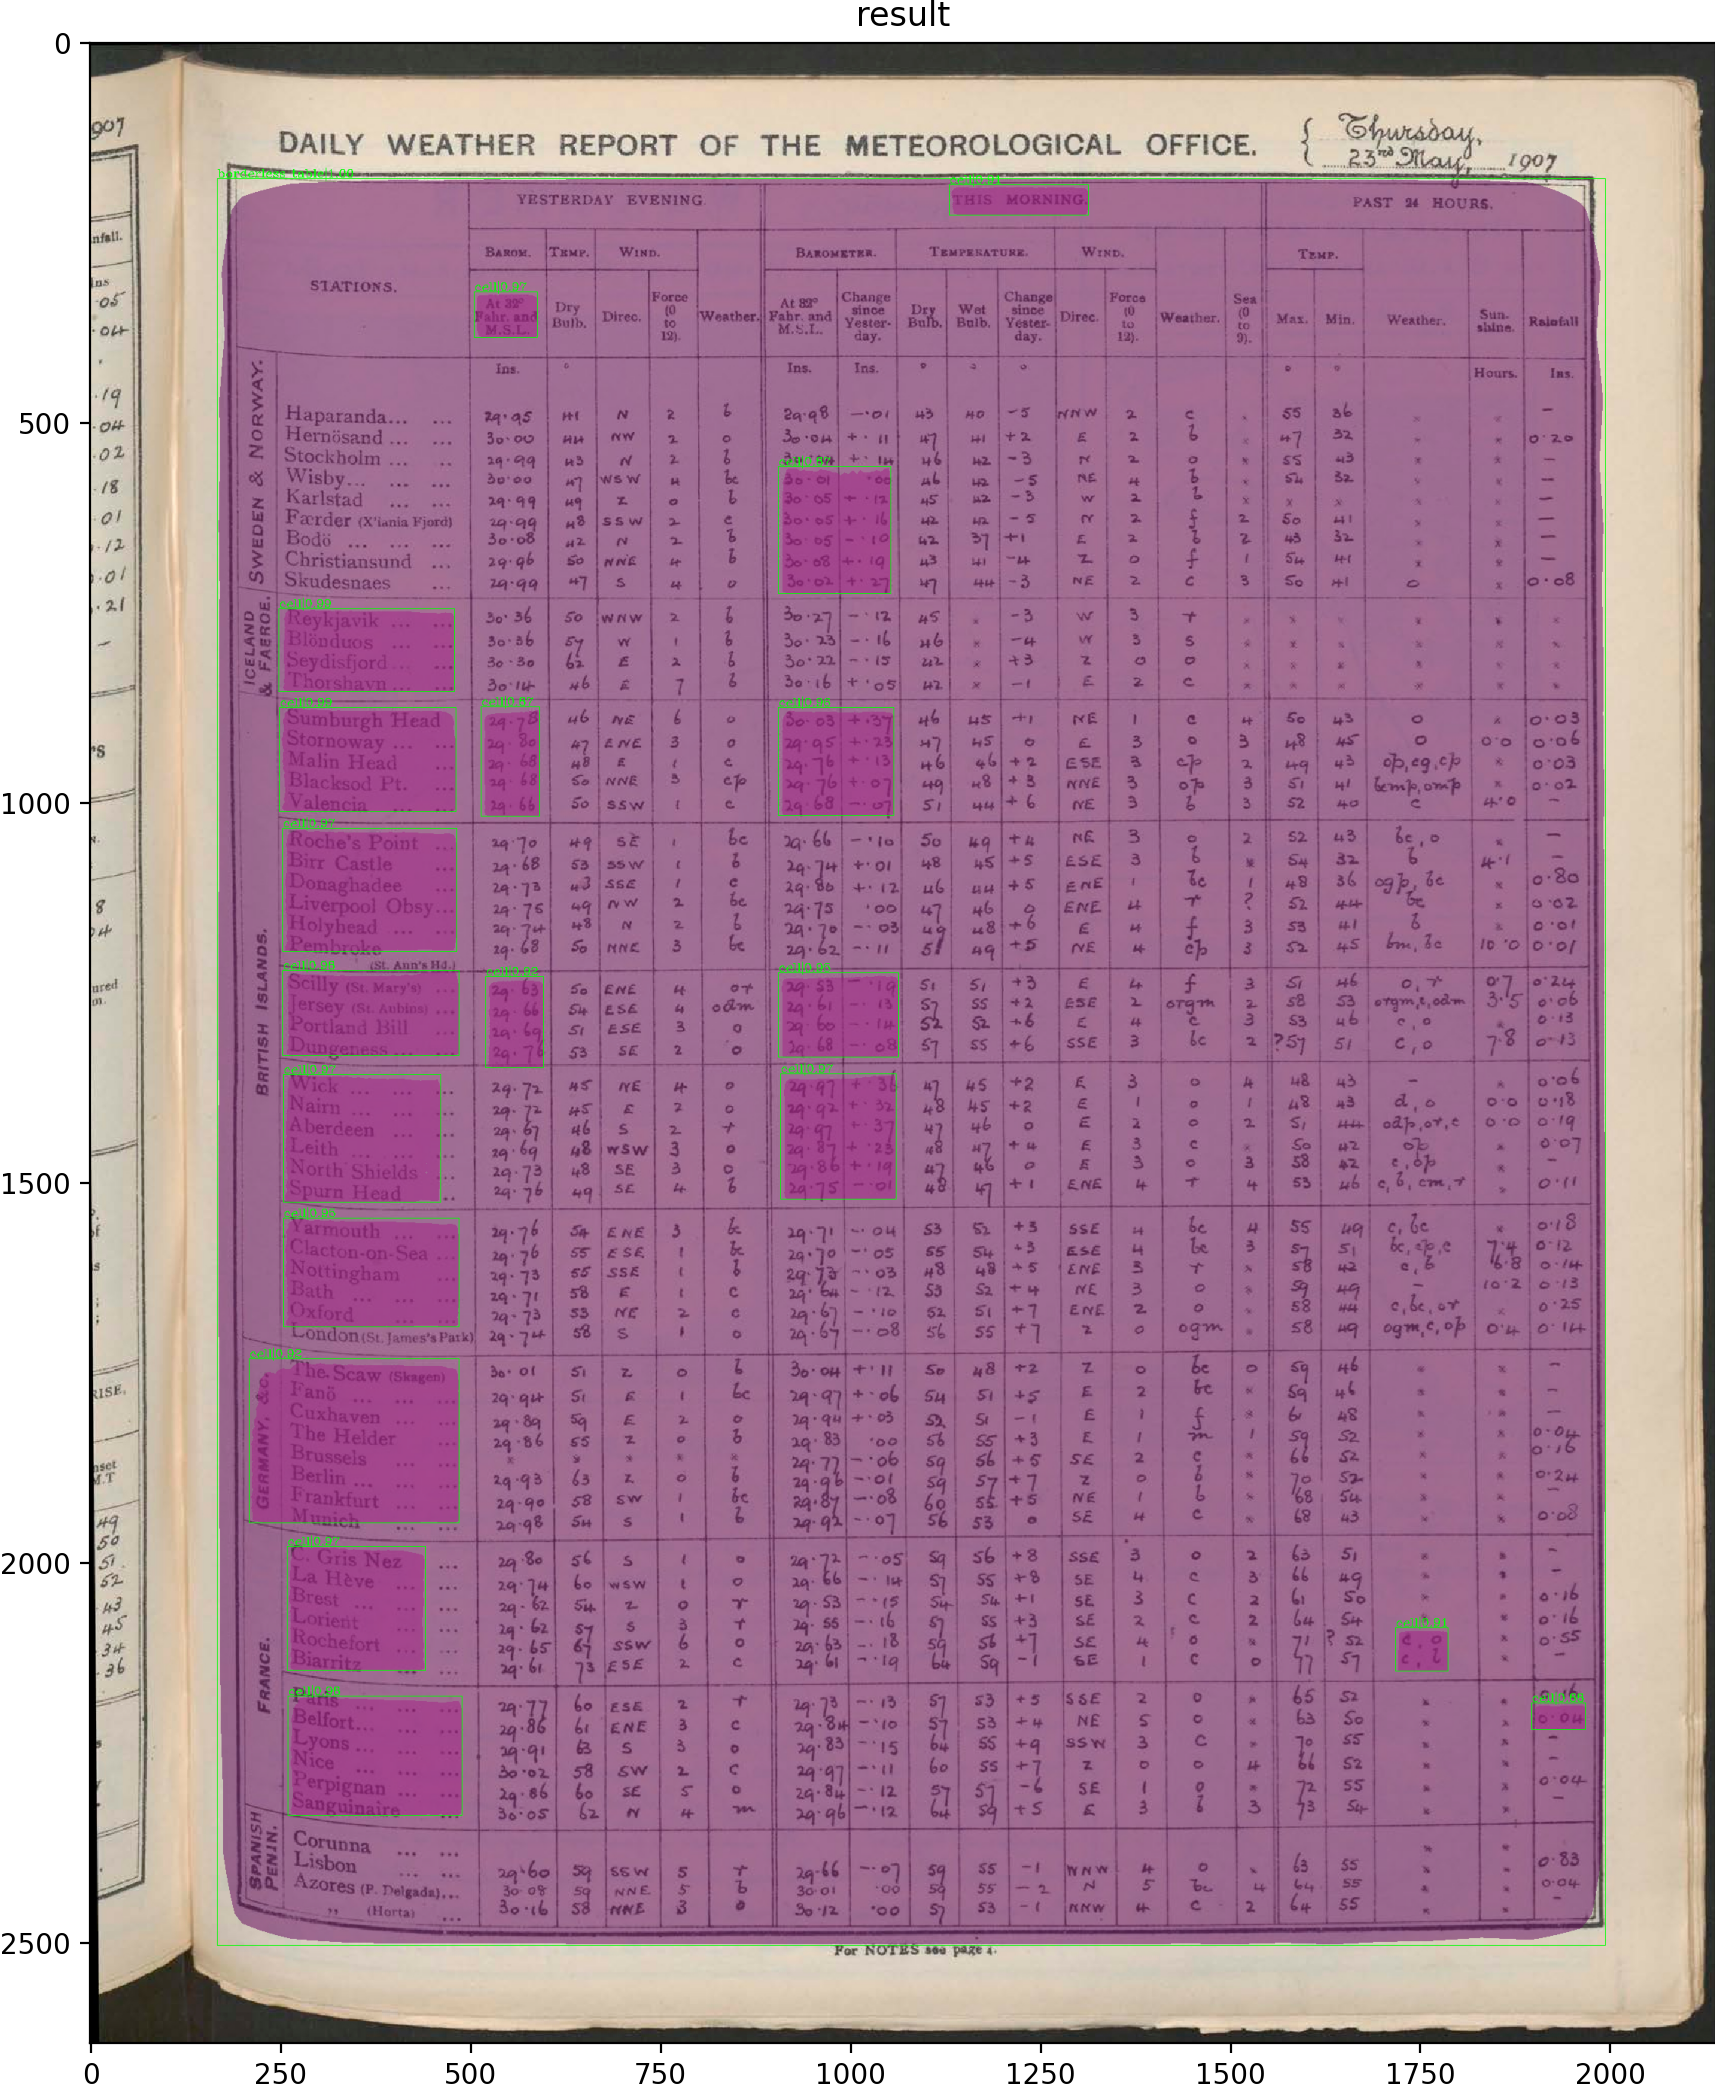 result
DAILY WEATHER REPORT OF THE METEOROLOGICAL OFFICE.
Thursday,
23rd May, 1907
YESTERDAY EVENING. THIS MORNING. PAST 24 HOURS.
STATIONS.
BAROM. TEMP. WIND. BAROMETER. TEMPERATURE. WIND. TEMP.
At 32° Fahr. and M.S.L. Dry Bulb. Direc. Force (0 to 12). Weather. At 32° Fahr. and M.S.L. Change since Yester-day. Dry Bulb. Wet Bulb. Change since Yester-day. Direc. Force (0 to 12). Weather. Sea (0 to 9). Max. Min. Weather. Sun-shine. Rainfall
Ins. ° Ins. Ins. ° ° ° ° ° Hours. Ins.
SWEDEN & NORWAY.
Haparanda... ... 29.95 41 N 2 b 29.98 -.01 43 40 -5 NNW 2 c × 55 36 × × —
Hernösand ... ... 30.00 44 NW 2 o 30.04 +.11 47 41 +2 E 2 b × 47 32 × × 0.20
Stockholm ... ... 29.99 43 N 2 b +.14 46 42 -3 N 2 o × 55 43 × × —
Wisby... ... ... 30.00 47 WSW 4 bc 30.01 .00 46 42 -5 NE 4 b × 54 32 × × —
Karlstad ... ... 29.99 49 Z 0 b 30.05 +.12 45 42 -3 W 2 b × × × × × —
Færder (X'iania Fjord) 29.99 48 SSW 2 c 30.05 +.16 42 42 -5 N 2 f 2 50 41 × × —
Bodö ... ... ... 30.08 42 N 2 b 30.05 -.10 42 37 +1 E 2 b 2 43 32 × × —
Christiansund ... 29.96 50 NNE 4 b 30.08 +.19 43 41 -4 Z 0 f 1 54 41 × × —
Skudesnaes ... 29.99 47 S 4 o 30.02 +.27 47 44 -3 NE 2 c 3 50 41 o × 0.08
ICELAND & FAEROE.
Reykjavik ... ... 30.36 50 WNW 2 b 30.27 -.12 45 × -3 W 3 r × × × × × ×
Blönduos ... ... 30.36 57 W 1 b 30.23 -.16 46 × -4 W 3 s × × × × × ×
Seydisfjord ... ... 30.30 62 E 2 b 30.22 -.15 42 × +3 Z 0 o × × × × × ×
Thorshavn ... ... 30.14 46 E 7 b 30.16 +.05 42 × -1 E 2 c × × × × × ×
BRITISH ISLANDS.
Sumburgh Head 29.75 46 NE 6 o 30.03 +.37 46 45 +1 NE 1 c 4 50 43 o × 0.03
Stornoway ... ... 29.80 47 ENE 3 o 29.95 +.23 47 45 0 E 3 o 3 48 45 o 0.0 0.06
Malin Head ... 29.68 48 E 1 c 29.76 +.13 46 46 +2 ESE 3 cp 2 49 43 op,cg,cp × 0.03
Blacksod Pt. ... 29.68 50 NNE 3 cp 29.76 +.07 49 48 +3 NNE 3 op 3 51 41 bcmp,omp × 0.02
Valencia ... ... 29.66 50 SSW 1 c 29.68 -.07 51 44 +6 NE 3 b 3 52 40 c 4.0 —
Roche's Point ... 29.70 49 SE 1 bc 29.66 -.10 50 49 +4 NE 3 o 2 52 43 bc,o × —
Birr Castle ... 29.68 53 SSW 1 b 29.74 +.01 48 45 +5 ESE 3 b × 54 32 b 4.1 —
Donaghadee ... 29.73 43 SSE 1 c 29.80 +.12 46 44 +5 ENE 1 bc 1 48 36 ogp,bc × 0.80
Liverpool Obsy... 29.75 49 NW 2 bc 29.75 .00 47 46 0 ENE 4 r ? 52 44 bc × 0.02
Holyhead ... ... 29.74 48 N 2 b 29.70 -.03 49 48 +6 E 4 f 3 53 41 b × 0.01
Pembroke (St. Ann's Hd.) 29.68 50 NNE 3 bc 29.62 -.11 51 49 +5 NE 4 cp 3 52 45 bm,bc 10.0 0.01
Scilly (St. Mary's) ... 29.63 50 ENE 4 or 29.53 -.19 51 51 +3 E 4 f 3 51 46 o,r 0.7 0.24
Jersey (St. Aubins) ... 29.66 54 ESE 4 odm 29.61 -.13 57 55 +2 ESE 2 orgm 2 58 53 orgm,c,odm 3.5 0.06
Portland Bill ... 29.69 51 ESE 3 o 29.60 -.14 52 52 +6 E 4 c 3 53 46 c,o × 0.13
Dungeness ... ... 29.76 53 SE 2 o 29.68 -.08 57 55 +6 SSE 3 bc 2 ?57 51 c,o 7.8 0.13
Wick ... ... ... 29.72 45 NE 4 o 29.97 +.36 47 45 +2 E 3 o 4 48 43 — × 0.06
Nairn ... ... ... 29.72 45 E 2 o 29.92 +.32 48 45 +2 E 1 o 1 48 43 d,o 0.0 0.18
Aberdeen ... ... 29.67 46 S 2 r 29.97 +.37 47 46 0 E 2 o 2 51 44 odp,or,c 0.0 0.19
Leith ... ... ... 29.69 48 WSW 3 o 29.87 +.23 48 47 +4 E 3 c × 50 42 op × 0.07
North Shields ... 29.73 48 SE 3 o 29.86 +.19 47 46 0 E 3 o 3 58 42 c,op × —
Spurn Head ... 29.76 49 SE 4 b 29.75 -.01 48 47 +1 ENE 4 r 4 53 46 c,b,cm,r × 0.11
Yarmouth ... 29.76 54 ENE 3 bc 29.71 -.04 53 52 +3 SSE 4 bc 4 55 49 c,bc × 0.18
Clacton-on-Sea ... 29.76 55 ESE 1 bc 29.70 -.05 55 54 +3 ESE 4 bc 3 57 51 bc,cp,c 7.4 0.12
Nottingham ... 29.73 55 SSE 1 b 29.73 -.03 48 48 +5 ENE 3 r × 58 42 c,b 6.8 0.14
Bath ... ... ... 29.71 58 E 1 c 29.64 -.12 53 52 +4 NE 3 o × 59 49 — 10.2 0.13
Oxford ... ... 29.73 53 NE 2 c 29.67 -.10 52 51 +7 ENE 2 o × 58 44 c,bc,or × 0.25
London (St. James's Park) 29.74 58 S 1 o 29.67 -.08 56 55 +7 Z 0 ogm × 58 49 ogm,c,op 0.4 0.14
GERMANY, &c.
The Scaw (Skagen) 30.01 51 Z 0 b 30.04 +.11 50 48 +2 Z 0 bc 0 59 46 × × —
Fanö ... ... ... 29.94 51 E 1 bc 29.97 +.06 54 51 +5 E 2 bc × 59 46 × × —
Cuxhaven ... ... 29.89 59 E 2 o 29.94 +.03 52 51 -1 E 1 f × 61 48 × × —
The Helder ... 29.86 55 Z 0 b 29.83 .00 56 55 +3 E 1 m 1 59 52 × × 0.04
Brussels ... × × × × × 29.77 -.06 59 56 +5 SE 2 c × 66 52 × × 0.16
Berlin ... ... ... 29.93 63 Z 0 b 29.96 -.01 59 57 +7 Z 0 b × 70 52 × × 0.24
Frankfurt ... ... 29.90 58 SW 1 bc 29.87 -.08 60 55 +5 NE 1 b × 68 54 × × —
Munich ... ... 29.98 54 S 1 b 29.92 -.07 56 53 0 SE 4 c × 68 43 × × 0.08
FRANCE.
C. Gris Nez ... 29.80 56 S 1 o 29.72 -.05 59 56 +8 SSE 3 o 2 63 51 × × —
La Hève ... ... 29.74 60 WSW 1 o 29.66 -.14 57 55 +8 SE 4 c 3 66 49 × × —
Brest ... ... ... 29.62 54 Z 0 r 29.53 -.15 54 54 +1 SE 3 c 2 61 50 × × 0.16
Lorient ... ... 29.62 57 S 3 r 29.55 -.16 57 55 +3 SE 2 c 2 64 54 × × 0.16
Rochefort ... ... 29.65 67 SSW 6 o 29.63 -.18 59 56 +7 SE 4 o × 71 ?52 c,o × 0.55
Biarritz ... ... 29.61 73 ESE 2 c 29.61 -.19 64 59 -1 SE 1 c 0 77 57 c, × —
Paris ... ... 29.77 60 ESE 2 r 29.73 -.13 57 53 +5 SSE 2 o × 65 52 × × 0.16
Belfort... ... ... 29.86 61 ENE 3 c 29.84 -.10 57 53 +4 NE 5 o × 63 50 × × 0.04
Lyons ... ... ... 29.91 63 S 3 o 29.83 -.15 64 55 +9 SSW 3 c × 70 55 × × —
Nice ... ... ... 30.02 58 SW 2 c 29.97 -.11 60 55 +7 Z 0 o 4 66 52 × × —
Perpignan ... ... 29.86 60 SE 5 o 29.84 -.12 57 57 -6 SE 1 o × 72 55 × × 0.04
Sanguinaire ... 30.05 62 N 4 m 29.96 -.12 64 59 +5 E 3 b 3 73 54 × × —
SPANISH PENIN.
Corunna ... ... × ×
Lisbon ... ... 29.60 59 SSW 5 r 29.66 -.07 59 55 -1 WNW 4 o × 63 55 × × 0.83
Azores (P. Delgada)... 30.08 59 NNE 5 b 30.01 .00 59 55 -2 N 5 bc 4 64 55 × × 0.04
„ (Horta) ... 30.16 58 NNE 3 o 30.12 .00 57 53 -1 NNW 4 c 2 64 55 × × —
For NOTES see page 4.
0 500 1000 1500 2000 2500
0 250 500 750 1000 1250 1500 1750 2000